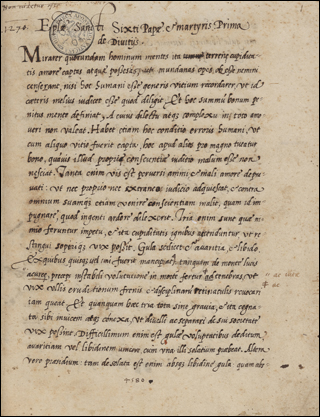 1274.
Epla Sancti Sixti Papę et martyris Prima
de Divitijs.
Mirarer quorundam hominum mentes ita terrenę cupidita-
tis amore captas atque possessas, ut mundanas opes, de esse nemini
censerant, nisi hoc humani esse generis vitium recordarer, ut id
cęteris melius iudicet esse quod diligit. Et hoc summū bonum pe-
nitus mente definiat, A cuius dilectu atque complexu in toto amo-
veri non valeat. Habet etiam hoc conditio erroris humani, ut
cum aliquo vitio fuerit capta, hoc apud alios pro magno tueatur
bono, quāvis illud proprię conscientię iudicio malum esse non
nesciat. Tanta enim vis est perversi animi et mali amore depra-
vati: ut nec proprio nec extraneo iudicio adquiescat, et contra
omnium suamque etiam venire conscientiam malit, quam id im-
pugnare, quod ingenti ardore dilexerit. Tria enim sunt quę ni-
mio feruntur impetu, et ita cupiditatis ignibus accenduntur, ut re-
stingui, sopirique vix possint. Gula scilicet et avaritia et libido.
Ex quibus quisquis uel uni fuerit mancipatus, tanquam de monte lucis
in morte fertur ad tenebras, ut
vix ullis eruditionum frenis et disciplinarū retinaculis revocari
tam queat. Et quanquam hæc tria tota sint gravia, et ita cogna-
ta sibi invicem atque conexa, ut difficile ac separari de sui societate
vix possint. Difficillimum enim est gulę voluptatibus deditum,
avaritiam vel libidinem uincere, cum vna illi solatium præbeat. Alteri
vero prandium: tam desolata est enim absque libidine gula, quam abs-